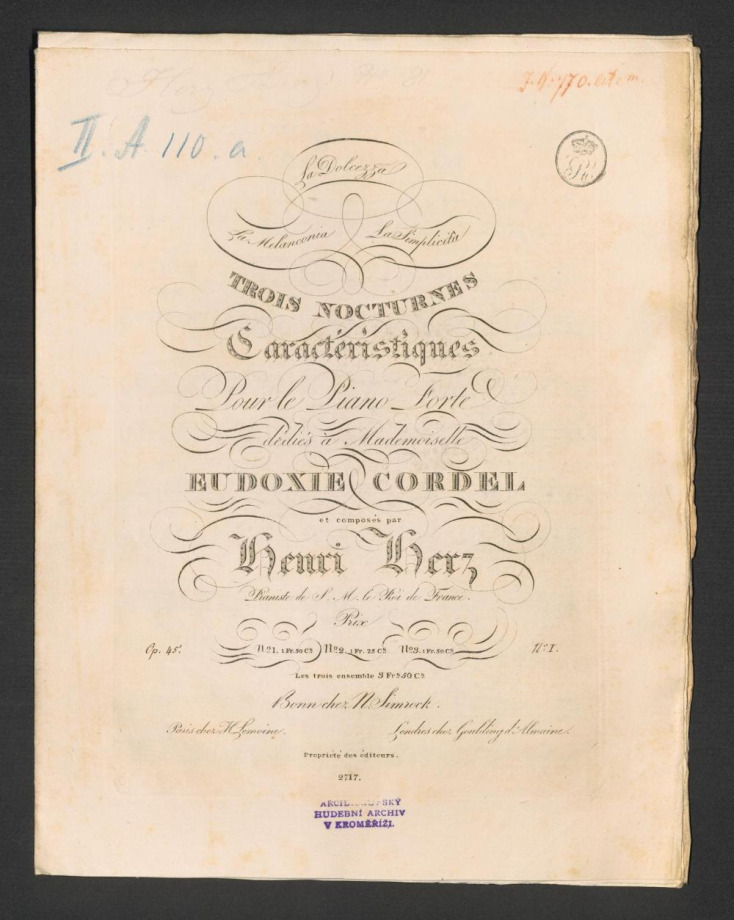 II. A 110. a
La Dolcezza
La Melanconia La Simplicità
TROIS NOCTURNES
Caractéristiques
Pour le Piano Forte
dédiés à Mademoiselle
EUDOXIE CORDEL
et composés par
Henri Herz
Pianiste de S. M. le Roi de France.
Prix
Op. 45. No. 1. 1 Fr. 50 Cs. No. 2. 1 Fr. 25 Cs. No. 3. 1 Fr. 50 Cs. No. I.
Les trois ensemble 3 Frs. 50 Cs.
Bonn chez N. Simrock.
Paris chez H. Lemoine. Londres chez Goulding d'Almaine.
Propriété des éditeurs.
2717.
HUDEBNÍ ARCHIV
V KROMĚŘÍŽI.